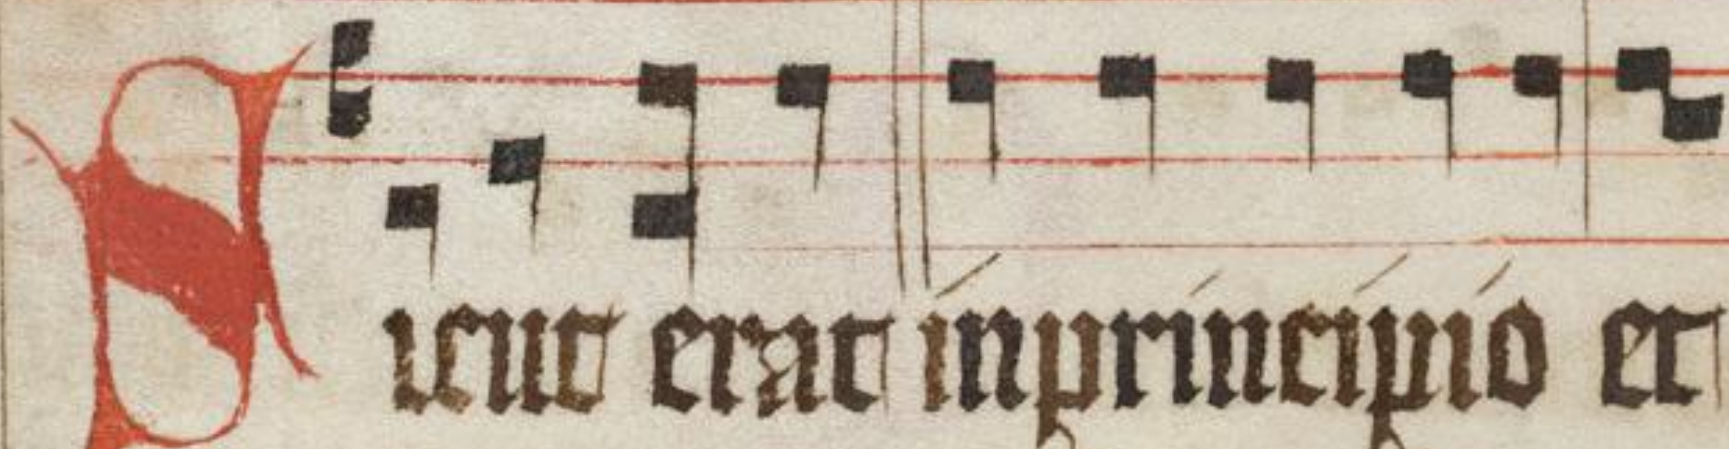 Sicut erat inprincipio et